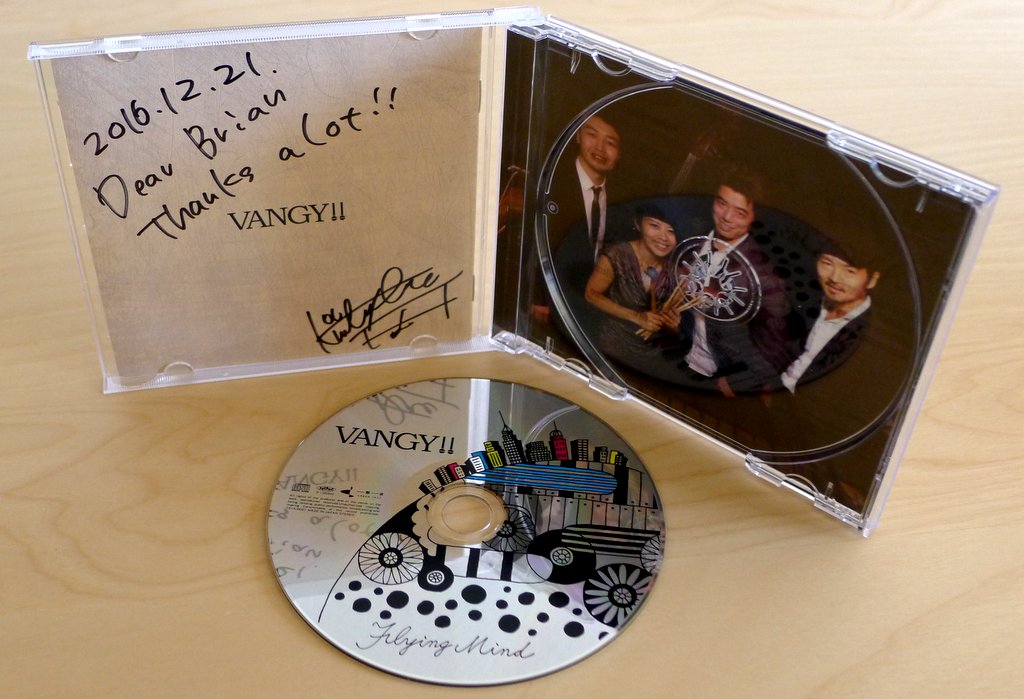 2016.12.21.
Dear Brian
Thanks a lot!!
VANGY!!
VANGY!!
Flying Mind